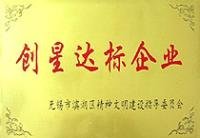 创星达标企业
无锡市滨湖区精神文明建设指导委员会